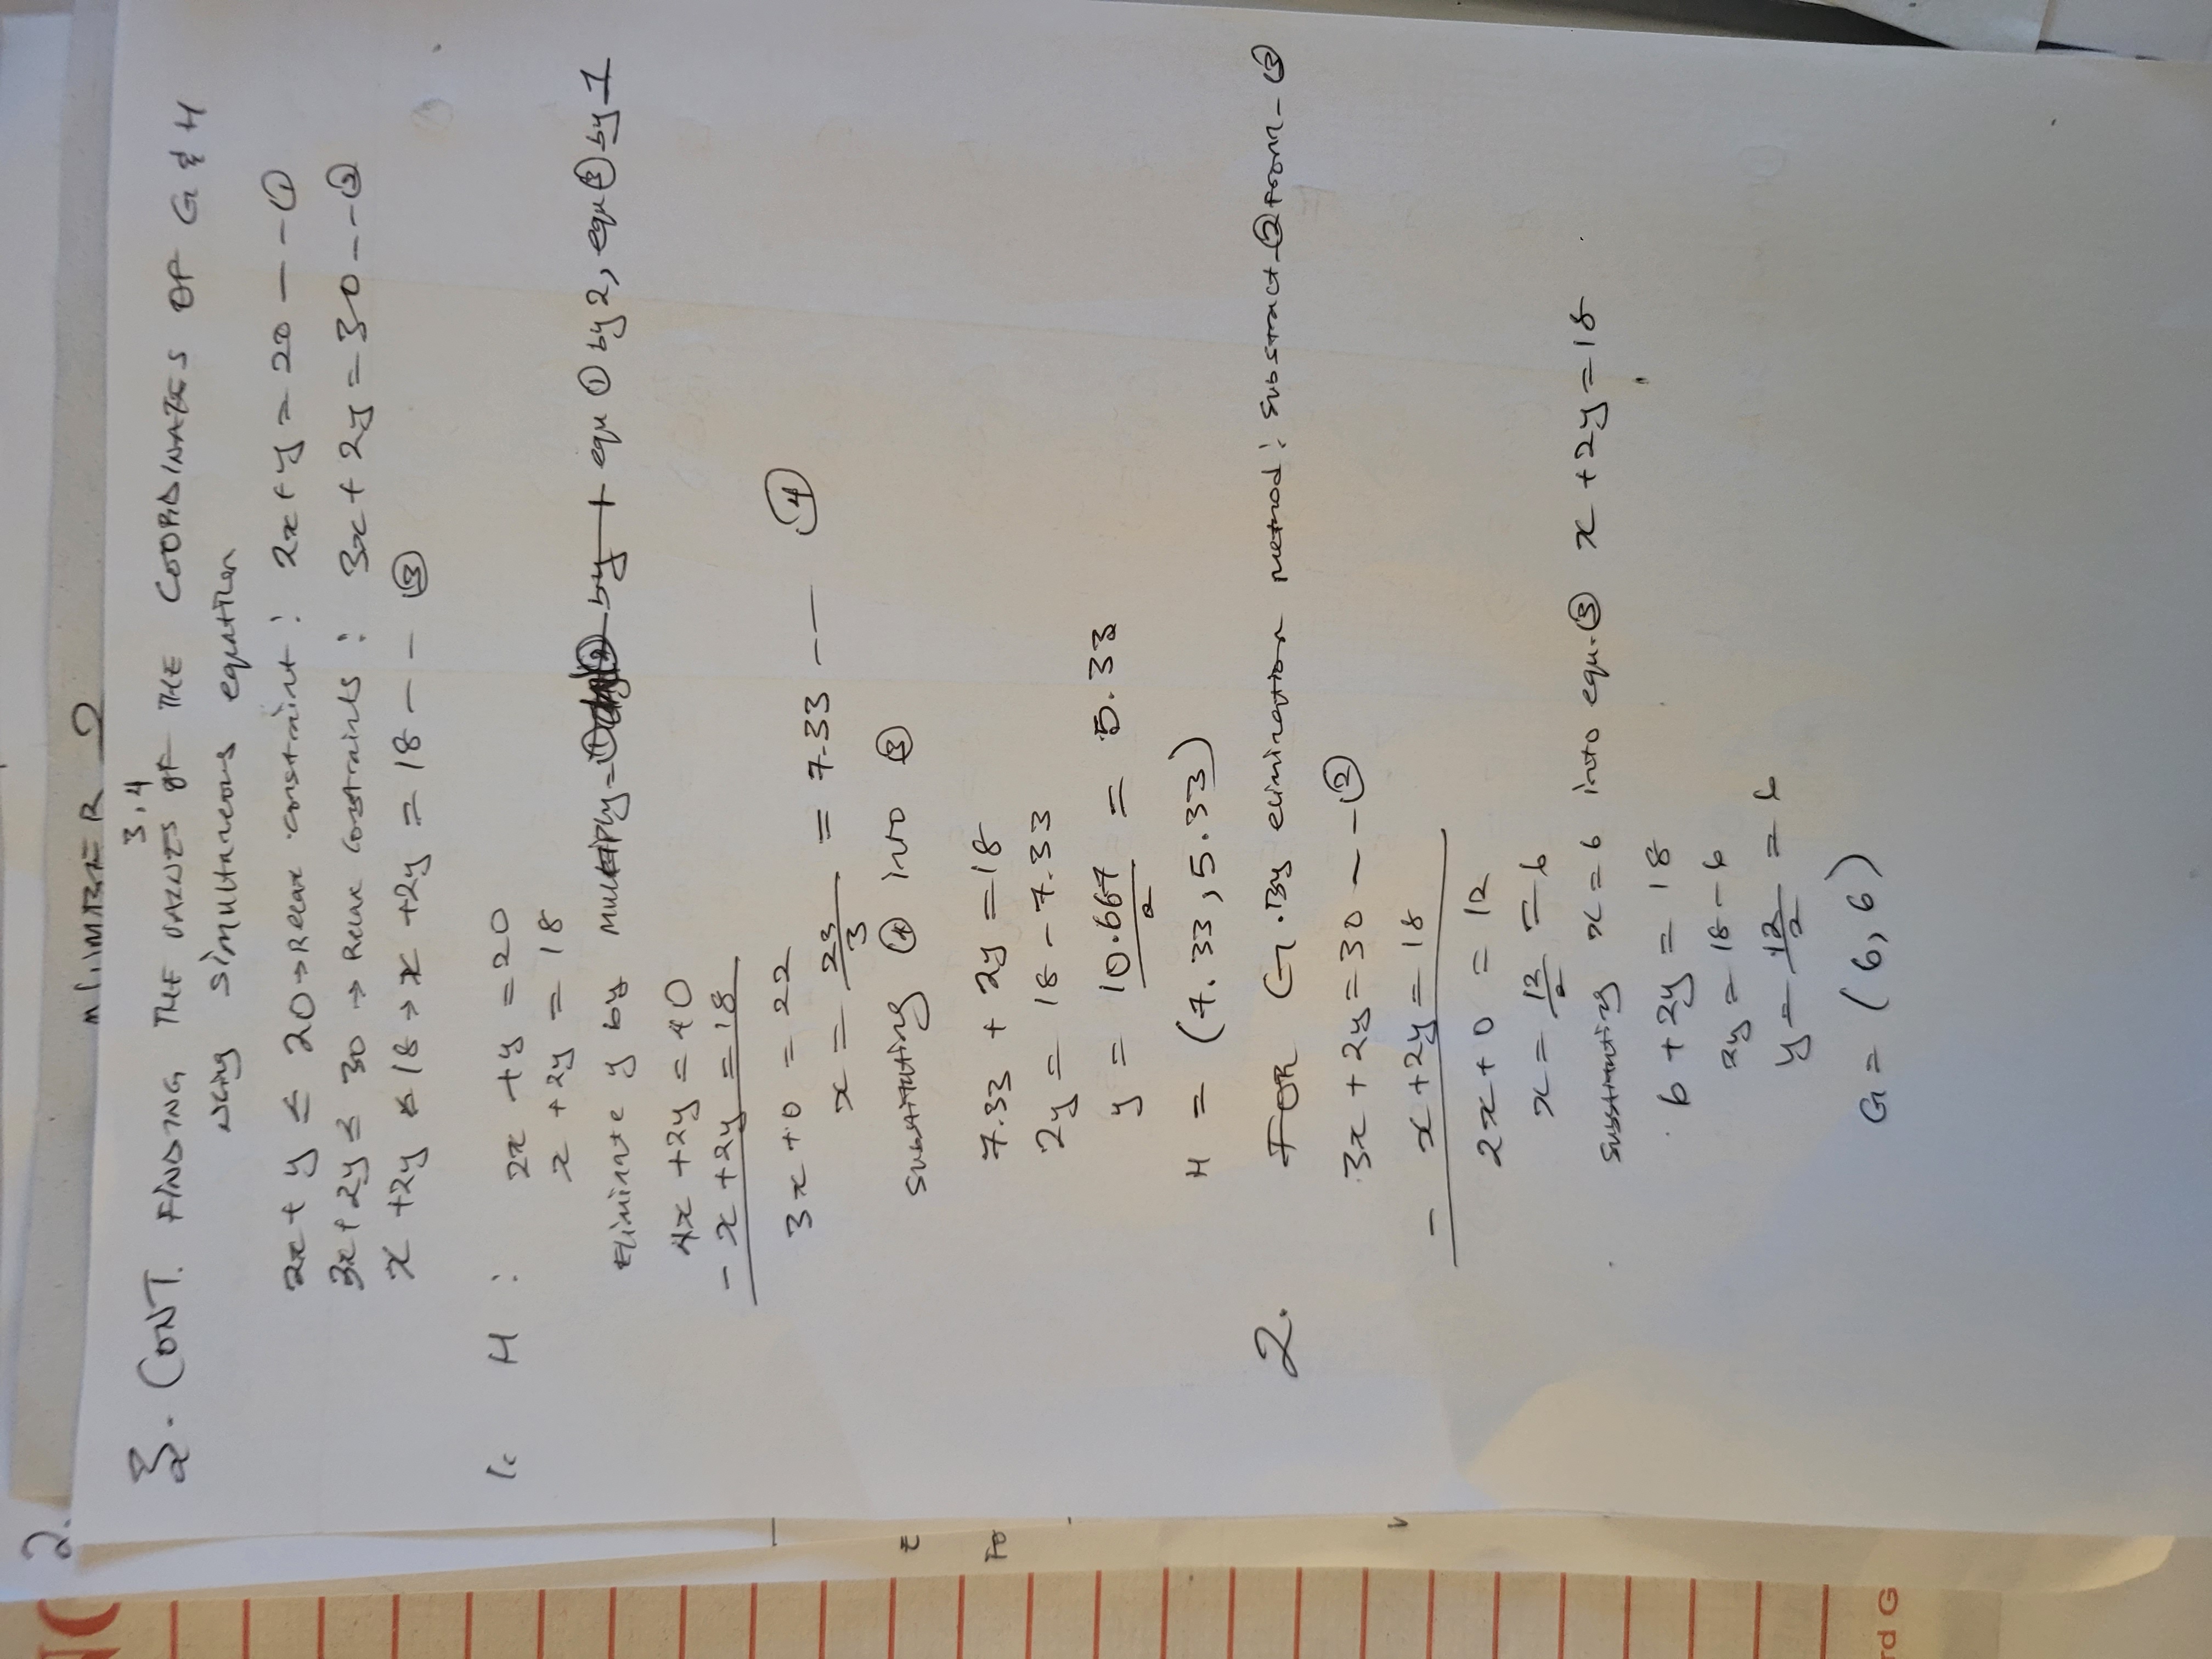 2.
NUMBER 2
3,4
3. CONT. FINDING THE VALUES OF THE COORDINATES OF G & H
using simultaneous equation
2x + y ≤ 20 → Relax constraint : 2x + y = 20 -- ①
3x + 2y ≤ 30 → Relax constraints : 3x + 2y = 30 -- ②
x + 2y ≤ 18 → x + 2y = 18 -- ③
1. H : 2x + y = 20
x + 2y = 18
Eliminate y by multiply equ ① by 2, equ ③ by 1
4x + 2y = 40
- x + 2y = 18
3x + 0 = 22
x = 23/3 = 7.33 -- ④
substituting ④ into ③
E
7.33 + 2y = 18
Fo
2y = 18 - 7.33
y = 10.667/2 = 5.33
H = (7.33, 5.33)
2. FOR G. By elimination method : substract ② from - ③
3x + 2y = 30 -- ②
- x + 2y = 18
2x + 0 = 12
x = 12/2 = 6
substituting x = 6 into equ. ③ x + 2y = 18
6 + 2y = 18
2y = 18 - 6
y = 12/2 = 6
G = (6, 6)
rd G